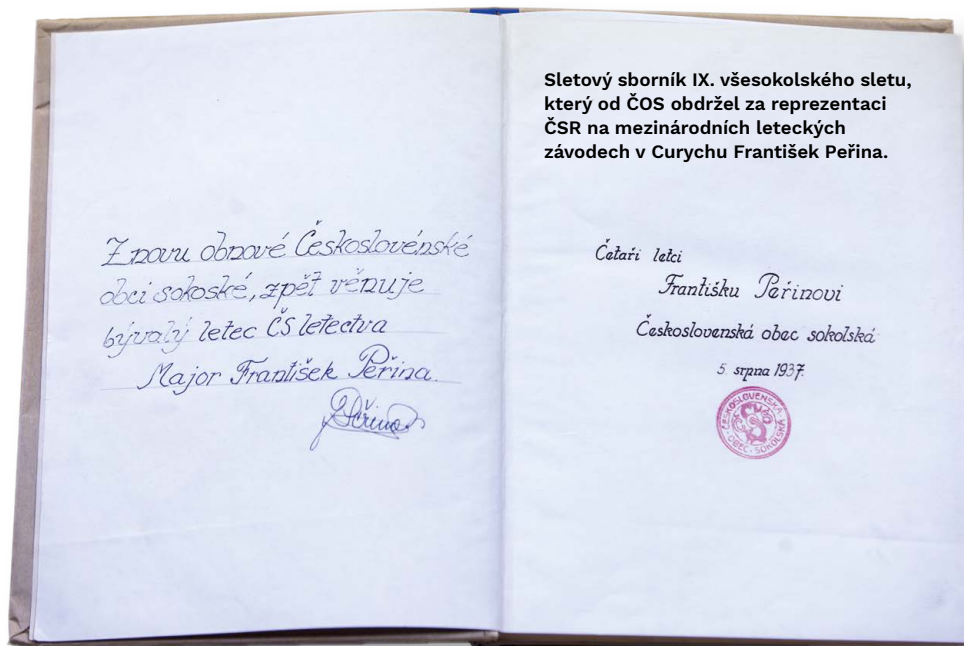 Znovu obnové Československé
obci sokoské, zpět věnuje
bývalý letec ČS letectva
Major František Peřina.
Peřina
Sletový sborník IX. všesokolského sletu,
který od ČOS obdržel za reprezentaci
ČSR na mezinárodních leteckých
závodech v Curychu František Peřina.
Četaři letci
Františku Peřinovi
Československá obec sokolská
5. srpna 1937.
ČESKOSLOVENSKÁ
OBEC · SOKOLSKÁ